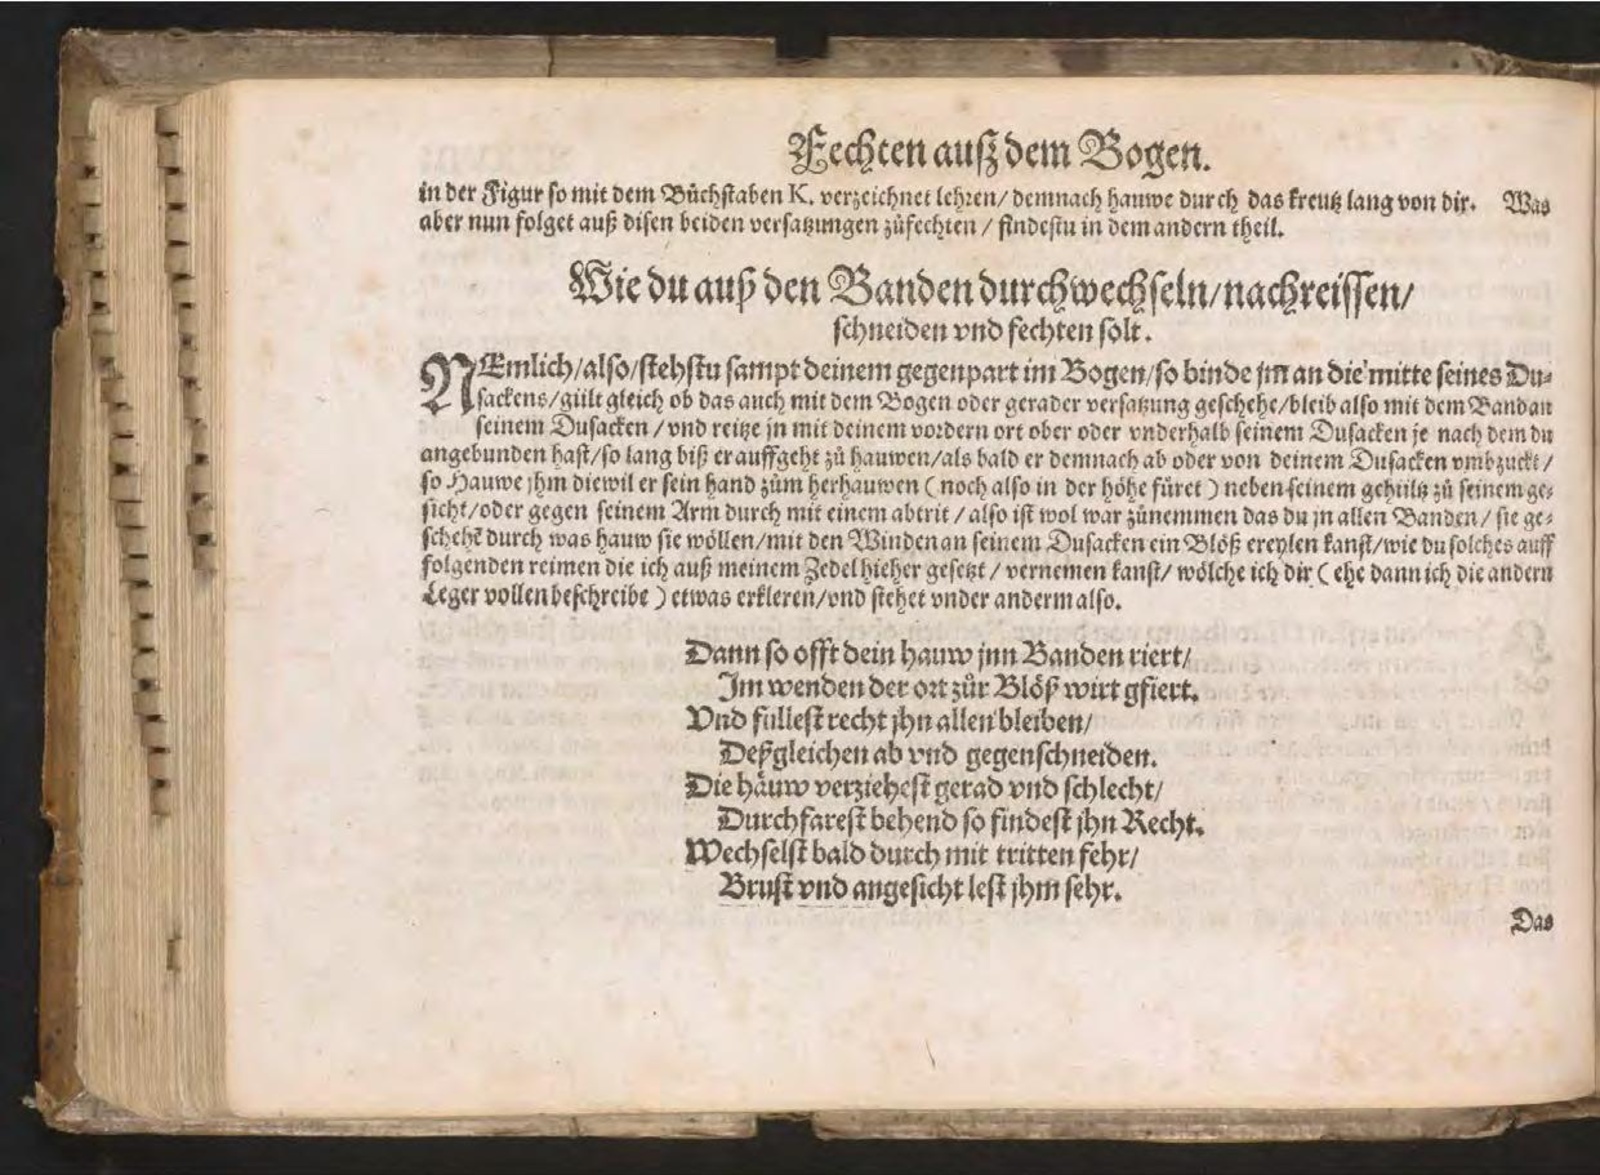 Fechten auß dem Bogen.
in der Figur so mit dem Bůchstaben K. verzeichnet lehren/ demnach hauwe durch das kreutz lang von dir. Was
aber nun folget auß disen beiden versatzungen zůfechten / findestu in dem andern theil.
Wie du auß den Banden durchwechseln/ nachreissen/
schneiden vnd fechten solt.
NEmlich/ also/ stehstu sampt deinem gegenpart im Bogen/ so binde jm an die mitte seines Du-
sackens/ giilt gleich ob das auch mit dem Bogen oder gerader versatzung geschehe/ bleib also mit dem Band an
seinem Dusacken / vnd reitze jn mit deinem vordern ort ober oder vnderhalb seinem Dusacken je nach dem du
angebunden hast/ so lang biß er auffgeht zů hauwen/ als bald er demnach ab oder von deinem Dusacken vmbzuckt /
so Hauwe jhm diewil er sein hand zům herhauwen ( noch also in der höhe füret ) neben seinem gehiiltz zů seinem ge-
sicht/ oder gegen seinem Arm durch mit einem abtrit / also ist wol war zůnemmen das du jn allen Banden / sie ge-
schehē durch was hauw sie wöllen/ mit den Winden an seinem Dusacken ein Blöß ereylen kanst/ wie du solches auff
folgenden reimen die ich auß meinem Zedel hieher gesetzt / vernemen kanst/ wölche ich dir ( ehe dann ich die andern
Leger vollen beschreibe ) etwas erkleren/ vnd stehet vnder anderm also.
Dann so offt dein hauw jnn Banden riert/
Im wenden der ort zůr Blöß wirt gfiert.
Vnd füllest recht jhn allen bleiben/
Deßgleichen ab vnd gegenschneiden.
Die häuw verziehest gerad vnd schlecht/
Durchfarest behend so findest jhn Recht.
Wechselst bald durch mit tritten fehr/
Brust vnd angesicht lest jhm sehr.
Das